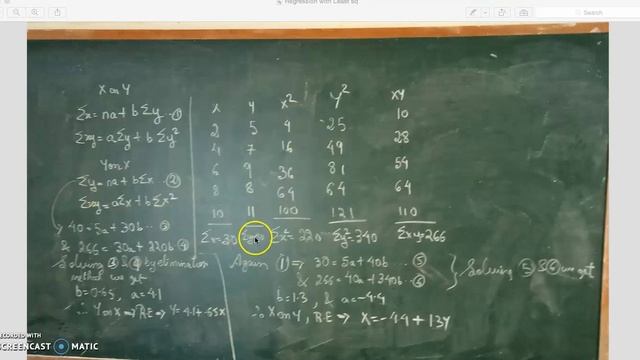 Regression with Least sq
Search
X on Y
Σx = na + bΣy —①
Σxy = aΣy + bΣy²
Y on X
Σy = na + bΣx —②
Σxy = aΣx + bΣx²
40 = 5a + 30b —③
& 266 = 30a + 220b —④
Solving ③ & ④ by elimination
method we get
b = 0.65, a = 4.1
∴ Y on X ⇒ R.E ⇒ Y = 4.1 + .65x
x y x² y² xy
2 5 4 25 10
4 7 16 49 28
6 9 36 81 54
8 8 64 64 64
10 11 100 121 110
Σx=30 Σx²=220 Σy²=340 Σxy=266
Again ① ⇒ 30 = 5a + 40b —⑤
& 266 = 40a + 340b —⑥
} Solving ⑤ & ⑥ we get
b = 1.3, & a = -4.4
∴ X on Y, R.E ⇒ X = -4.4 + 1.3Y
RECORDED WITH
SCREENCAST MATIC